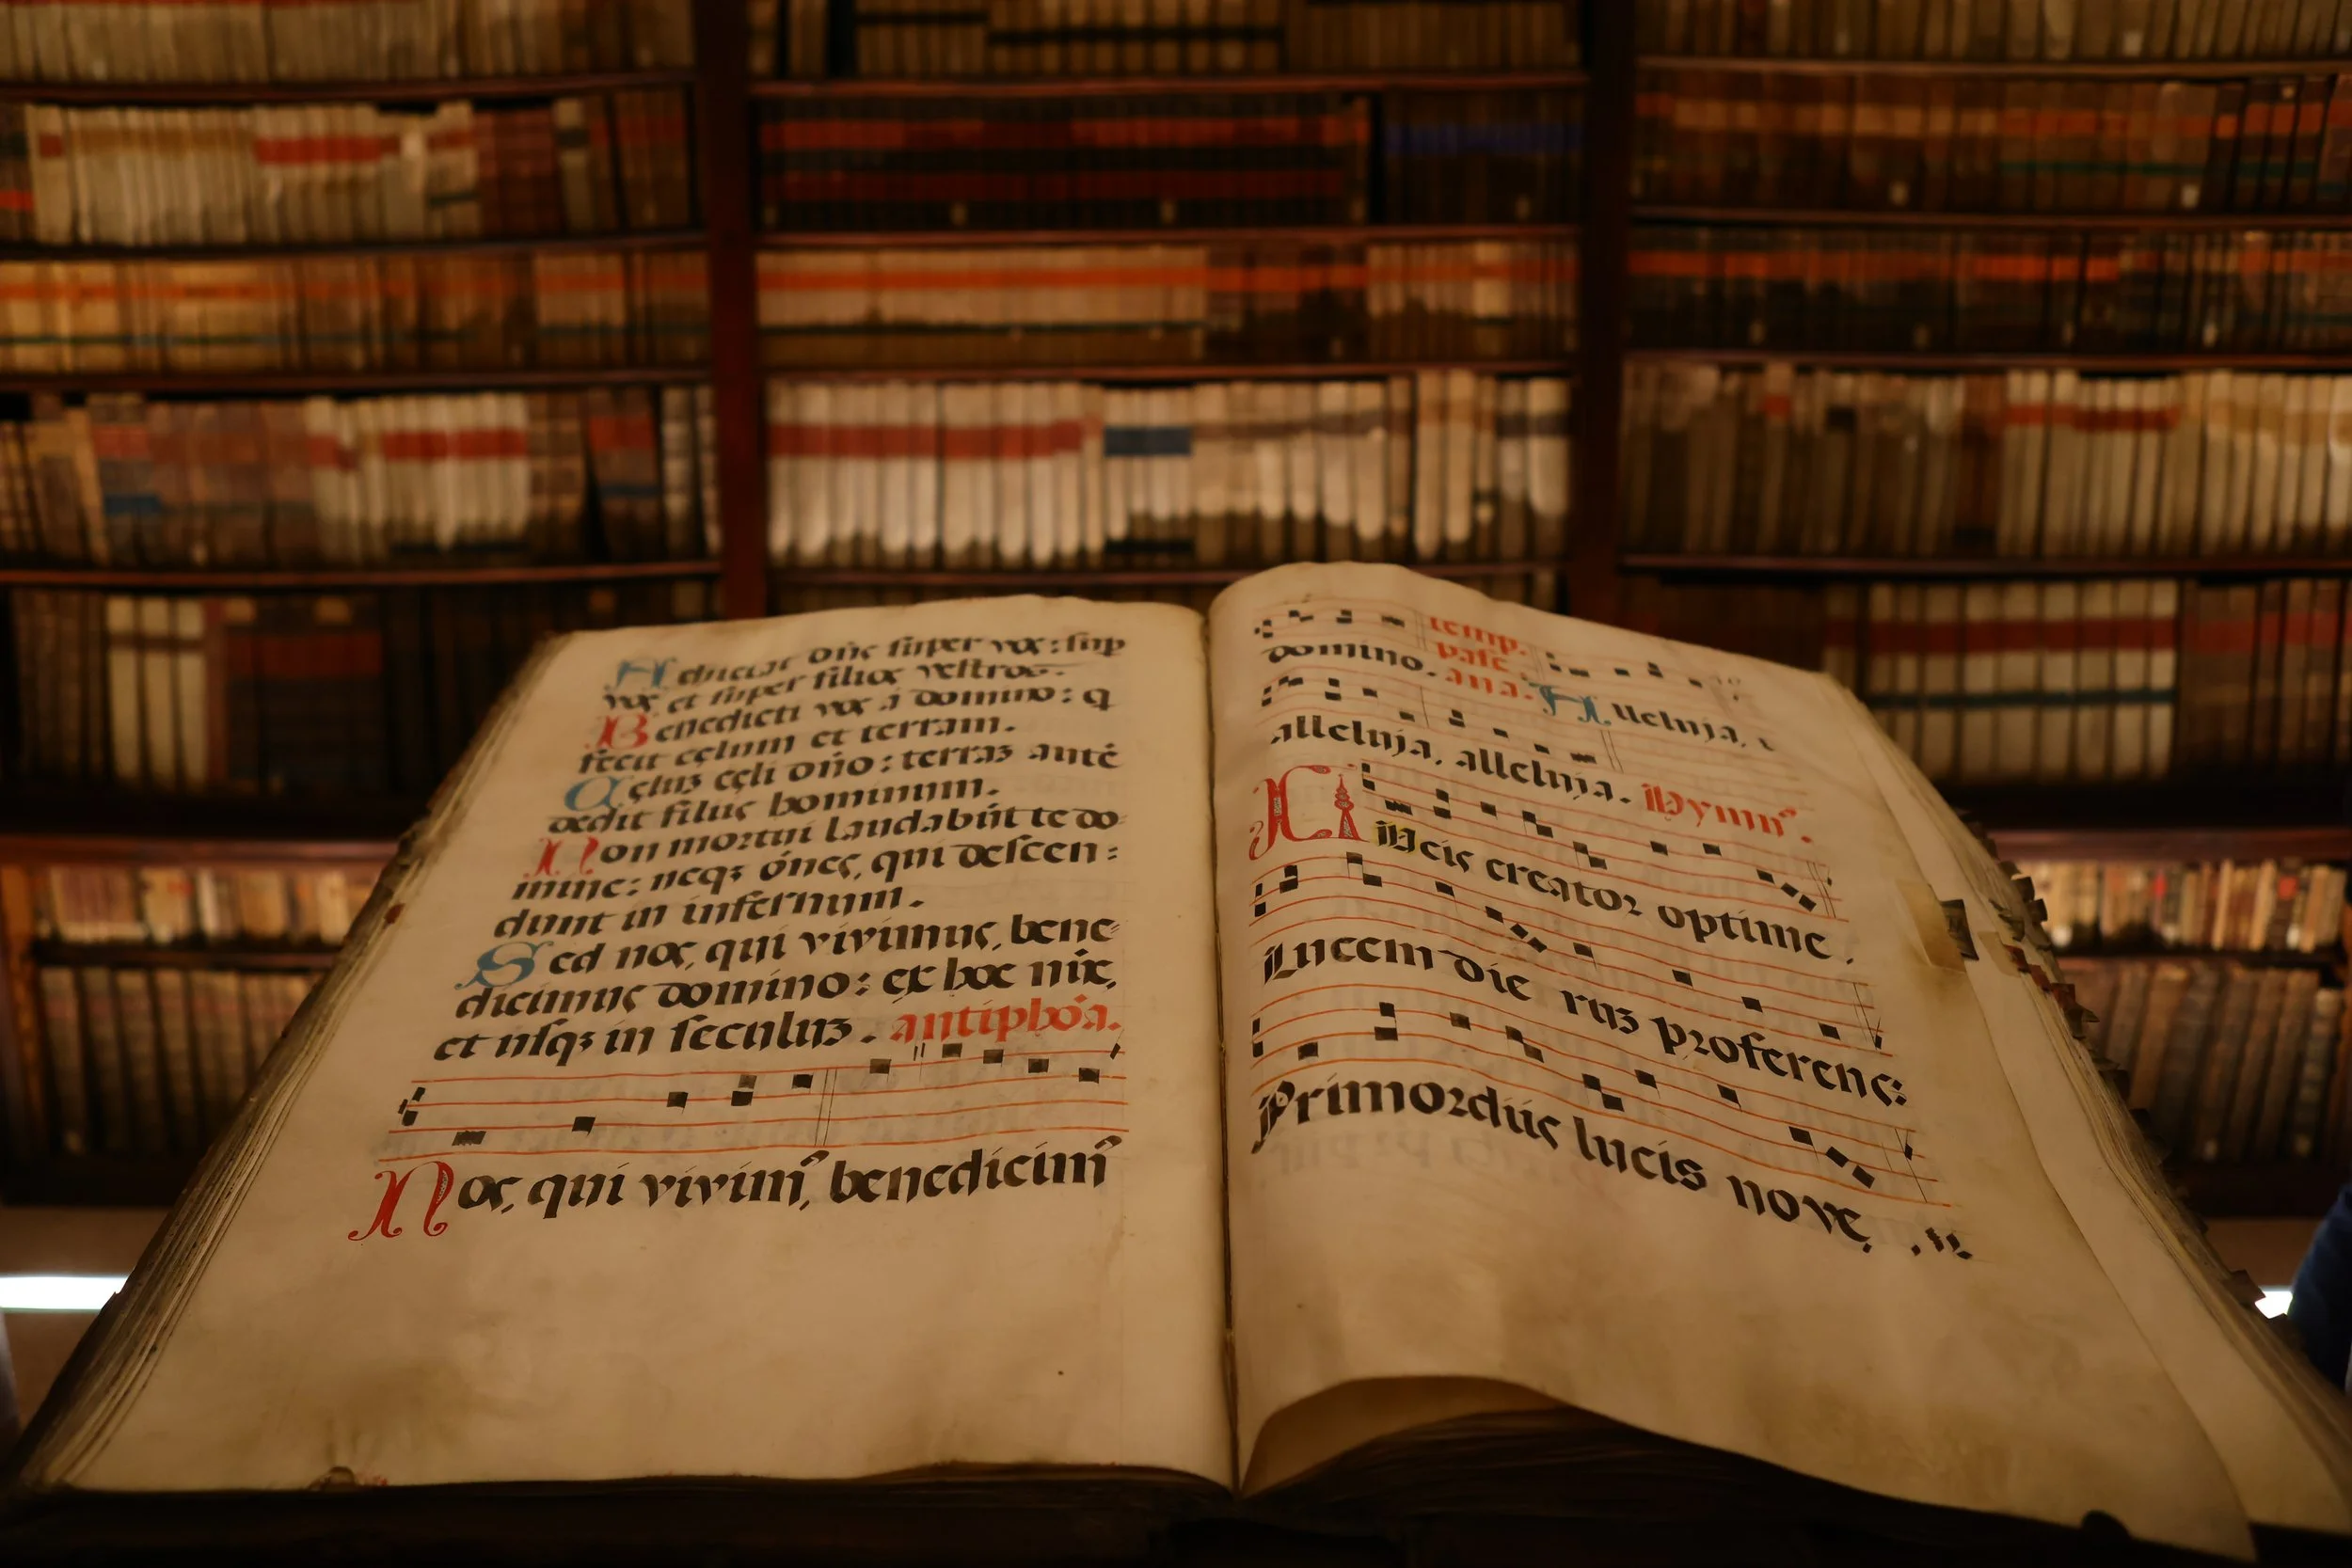 Adiciat dñs super vos: sup
vos et super filios vestros.
Benedicti vos a domino: q
fecit cęlum et terram.
Cęluꝫ cęli dño: terraꝫ autẽ
dedit filiis hominum.
Non mortui laudabũt te do
mine: neqꝫ ões, qui descen:
dunt in infernum.
Sed nos, qui vivimus, bene
dicimus domino: ex hoc nũc,
et usqꝫ in seculuꝫ. antiphõa.
Nos, qui vivim⁹, benedicim⁹
domino. temp. pasc. ana. Alleluja,
alleluja, alleluja. Hymn⁹.
LUcis creator optime.
Lucem die ruꝫ proferens:
Primordiis lucis novę,